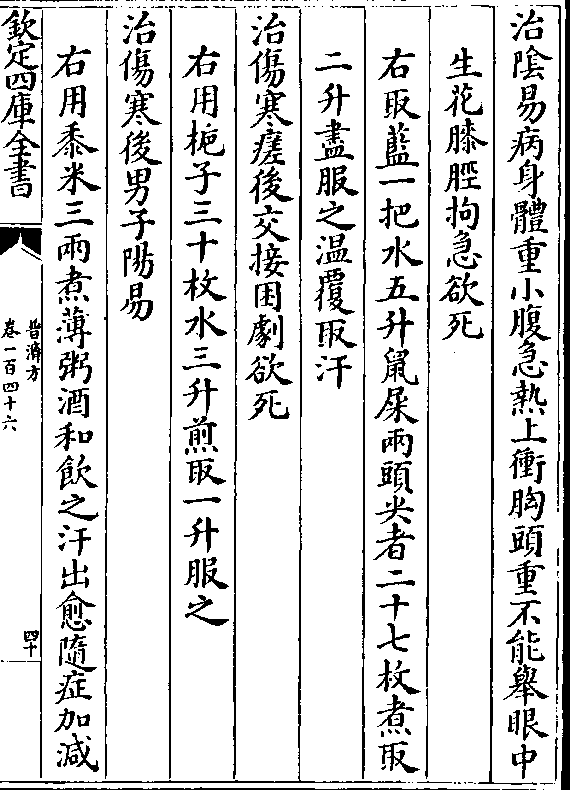 治隂易病身體重小腹急熱上衝胸頭重不能舉眼中
生花膝脛拘急欲死
右取藍一把水五升鼠屎兩頭尖者二十七枚煮取
二升盡服之温覆取汗
治傷寒瘥後交接困劇欲死
右用梔子三十枚水三升煎取一升服之
治傷寒後男子陽易
右用黍米三兩煮薄粥酒和飲之汗出愈隨症加減
欽定四庫全書
普濟方
卷一百四十六
四十